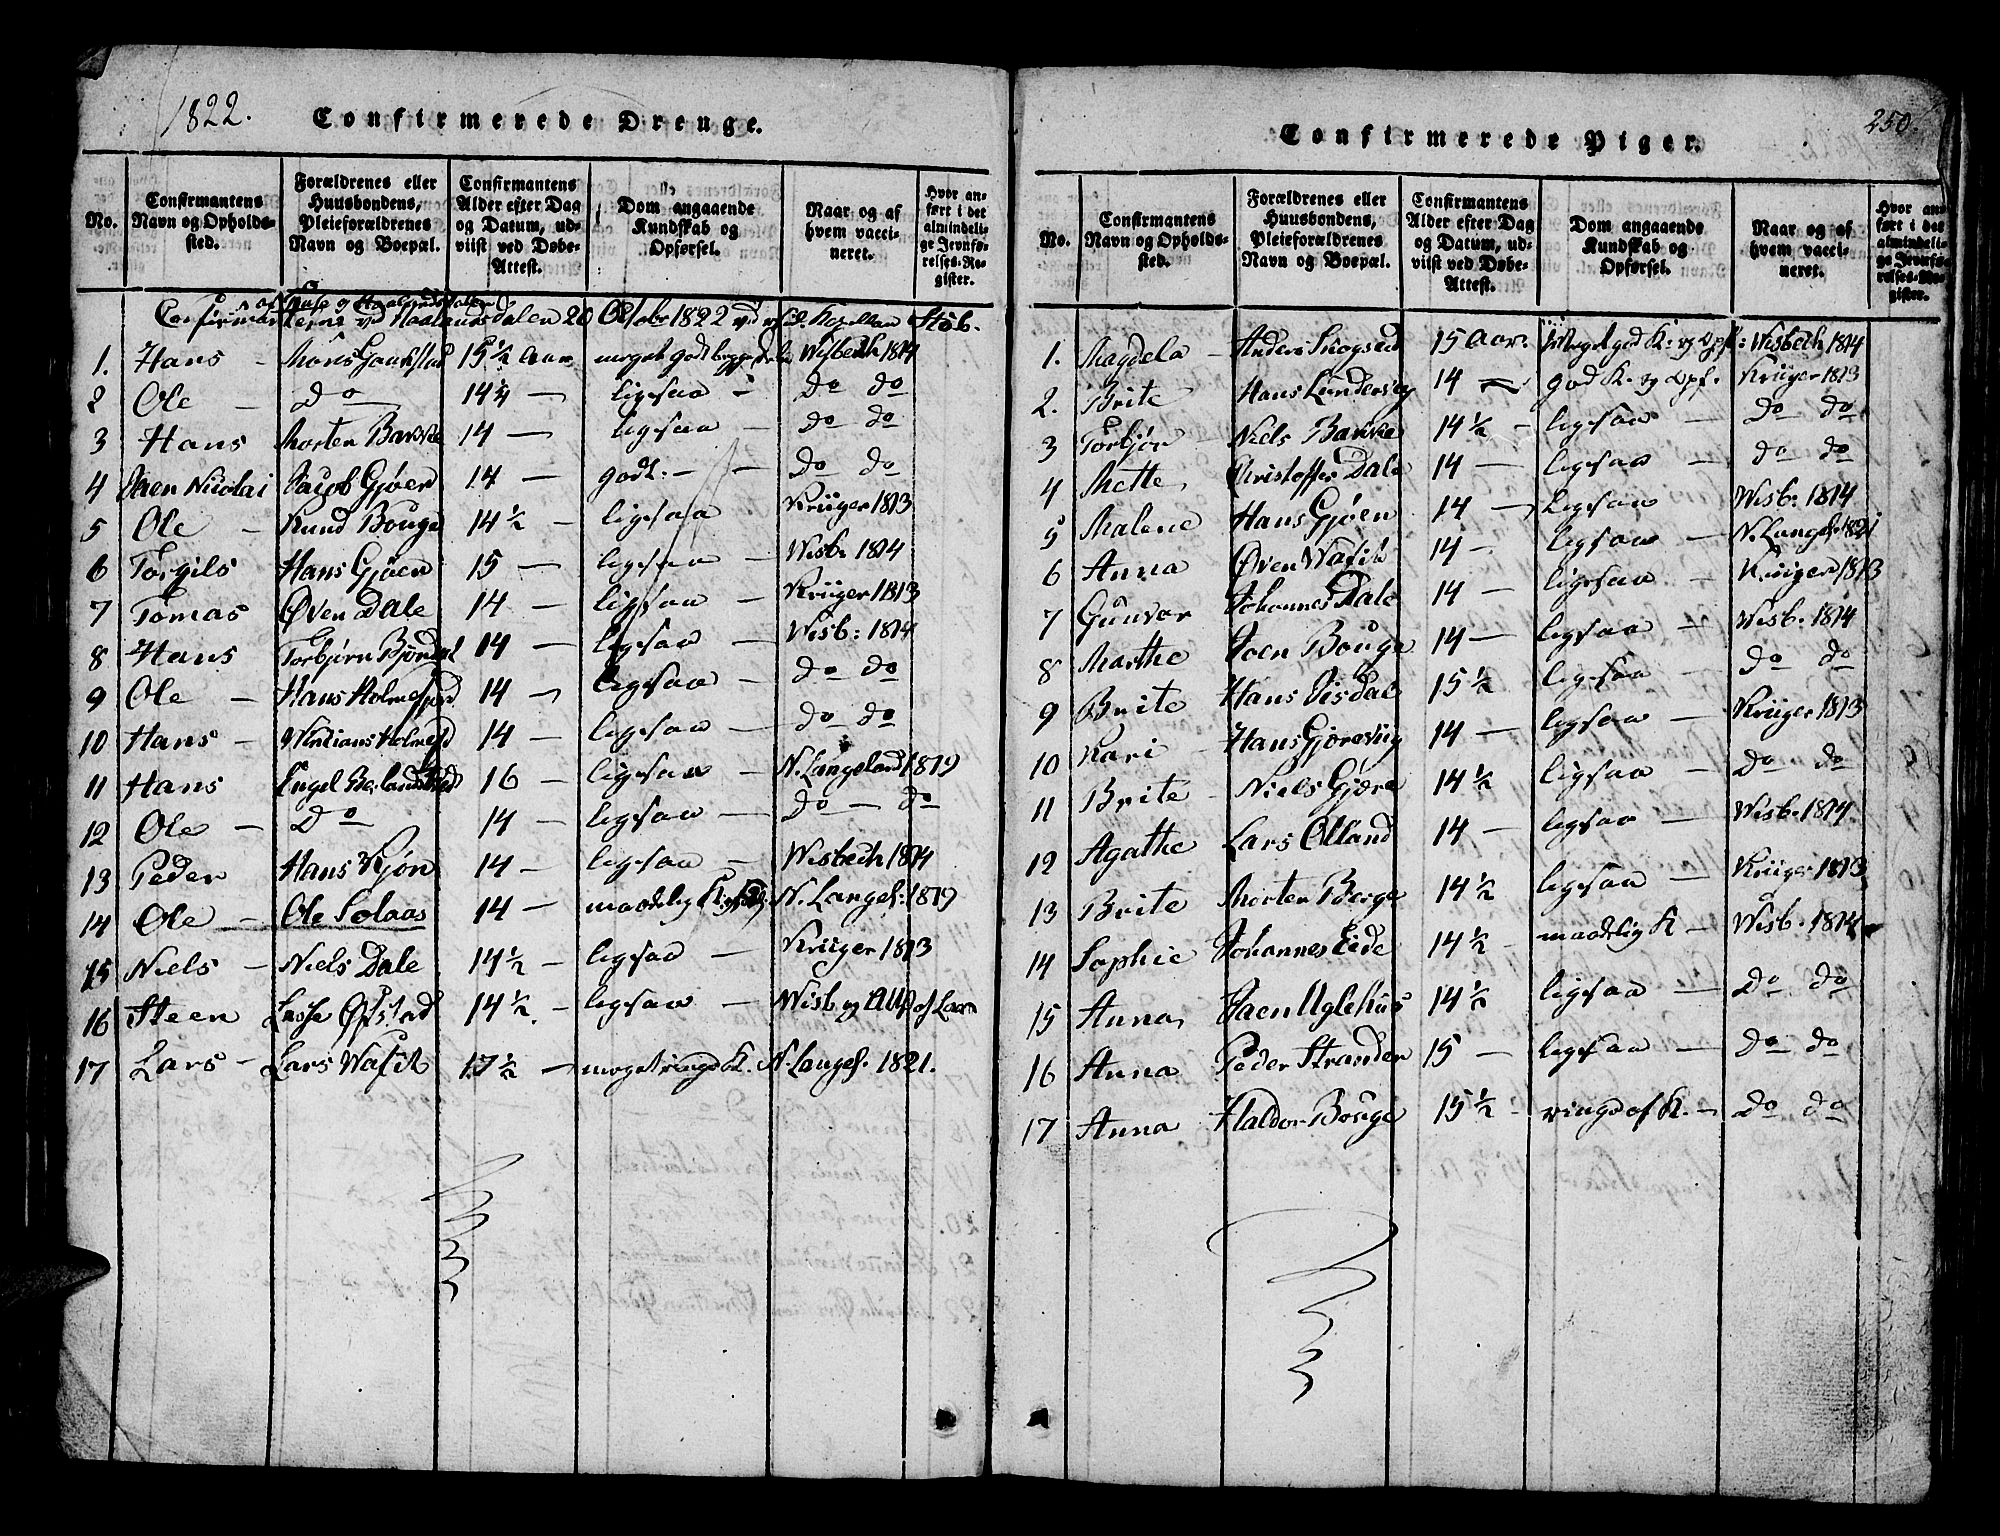 1822.
Confirmerede Drenge.
No.
Confirmantens Navn og Opholdssted.
Forældrenes eller Huusbondens, Pleieforældrenes Navn og Boepæl.
Confirmantens Alder efter Dag og Datum, udviist ved Døbe-Attest.
Dom angaaende Kundskab og Opførsel.
Naar og af hvem vaccineret.
Hvor anført i det almindelige Jevnførelses-Register.
October 1822
1. Hans - Mons 15 1/2 Aar meget god Wisbech 1814
2 Ole - Do 14 1/4 - ligesaa - Do Do
3 Hans Morten Barsve 14 - ligesaa - Do Do
4 Nicolai Jacob Gjøen 14 - godt - Do Do
5 Ole - Knud Bouge 14 1/2 - ligesaa Krüger 1813
6 Torgils Hans Gjøen 15 - ligesaa - Wisb. 1814
7 Tomas Øven Dale 14 - ligesaa - Krüger 1813
8 Hans Torbjørn 14 - ligesaa - Wisb: 1814
9 Ole - Hans 14 - ligesaa - Do Do
10 Hans - 14 - ligesaa - Do Do
11 Hans Engel 16 - ligesaa - N. Langeland 1819
12 Ole - Do 14 - ligesaa - Do - Do
13 Peder Hans Kjøn 14 - ligesaa - Wisbech 1814
14 Ole - Ole Solaas 14 - maadelig N. Langel: 1819
15 Niels - Niels Dale 14 1/2 - ligesaa - Krüger 1813
16 Steen Lasse Øfsted 14 1/2 - ligesaa - Wisb
17 Lars - Lars Wasik 17 1/2 - meget ringe K. N. Langel. 1821.
250.
Confirmerede Piger.
No.
Confirmantens Navn og Opholdssted.
Forældrenes eller Huusbondens, Pleieforældrenes Navn og Boepæl.
Confirmantens Alder efter Dag og Datum, udviist ved Døbe-Attest.
Dom angaaende Kundskab og Opførsel.
Naar og af hvem vaccineret.
Hvor anført i det almindelige Jevnførelses-Register.
1. Magdela - Anders 15 Aar. meget god K: og Opf: Wisbech 1814
2. Brite Hans 14 - god K. og Opf. Krüger 1813
3 Torbjør - Niels Barsve 14 1/2 - ligesaa - Do Do
4 Mette Christoffer Dale 14 - ligesaa - Do Do
5 Malene Hans Gjøen 14 - ligesaa Wisb: 1814
6 Anna Øven Wasik 14 - ligesaa - N. Langel. 1821
7 Gunvor Johannes Dale 14 - ligesaa - Krüger 1813
8 Marthe Joen Bouge 14 - ligesaa - Wisb. 1814
9 Brite Hans Disdal 15 1/2 ligesaa - Do Do
10 Kari - Hans 14 - ligesaa - Krüger 1813
11 Brite - Niels Gjøre 14 1/2 ligesaa - Do Do
12 Agathe Lars Olland 14 - ligesaa - Wisb. 1814
13 Brite Morten Berge 14 1/2 ligesaa - Krüger 1813
14 Sophie Johannes Eide 14 1/2 - maadelig K - Wisb. 1814
15 Anna Joen Uglehus 14 1/2 ligesaa - Do Do
16 Anna Peder Strander 15 - ligesaa - Do Do
17 Anna Haldor Bouge 15 1/2 - K. - Do Do